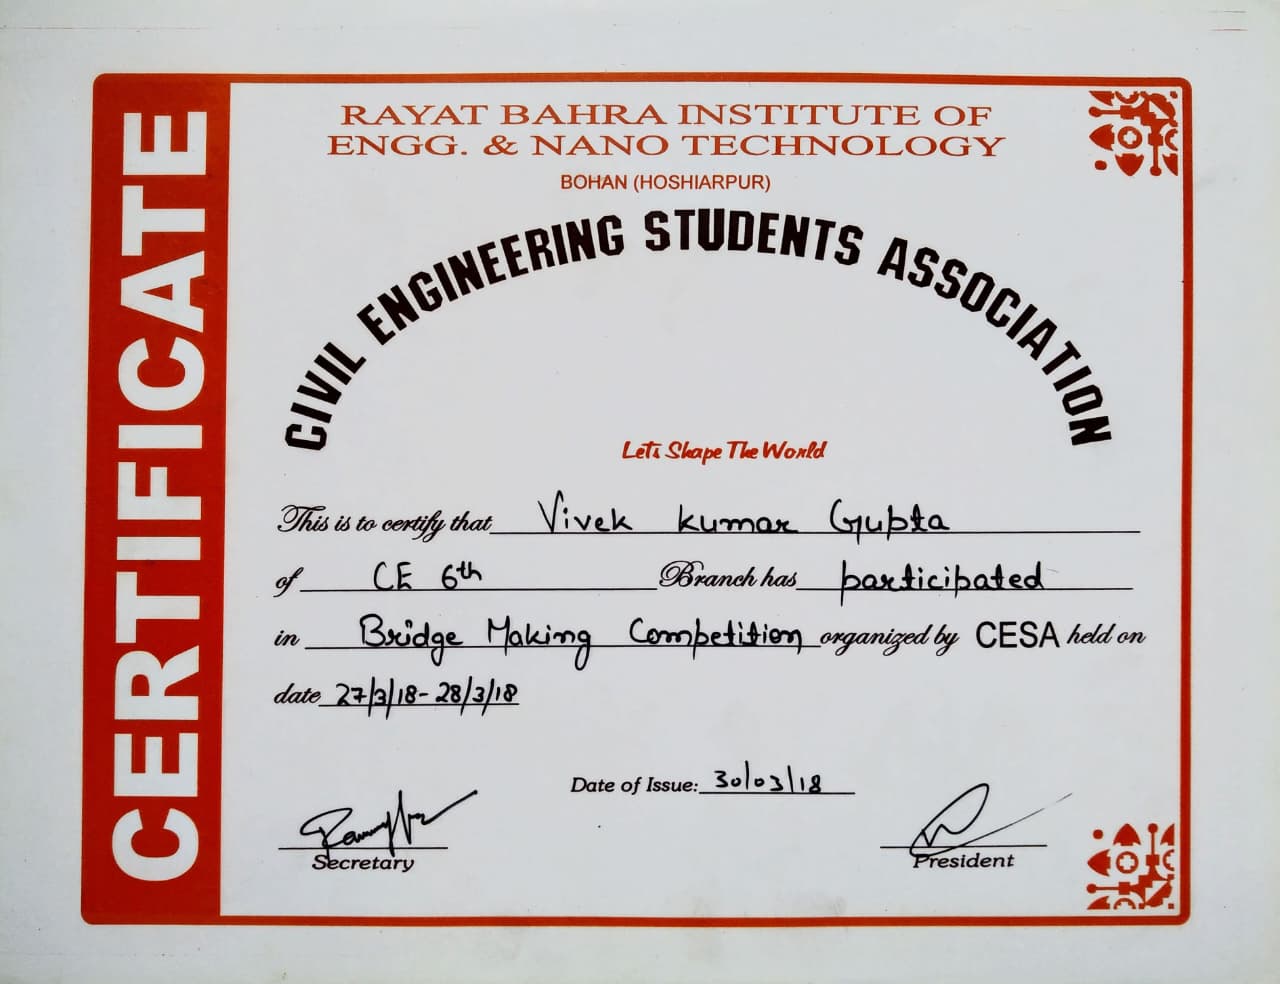 CERTIFICATE
RAYAT BAHRA INSTITUTE OF
ENGG. & NANO TECHNOLOGY
BOHAN (HOSHIARPUR)
CIVIL ENGINEERING STUDENTS ASSOCIATION
Lets Shape The World
This is to certify that Vivek kumar Gupta
of CE 6th Branch has participated
in Bridge Making Competition organized by CESA held on
date 27/3/18- 28/3/18
Date of Issue: 30/03/18
Secretary
President